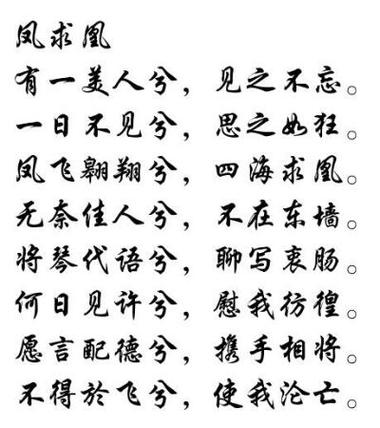 凤求凰
有一美人兮，见之不忘。
一日不见兮，思之如狂。
凤飞翱翔兮，四海求凰。
无奈佳人兮，不在东墙。
将琴代语兮，聊写衷肠。
何日见许兮，慰我彷徨。
愿言配德兮，携手相将。
不得於飞兮，使我沦亡。